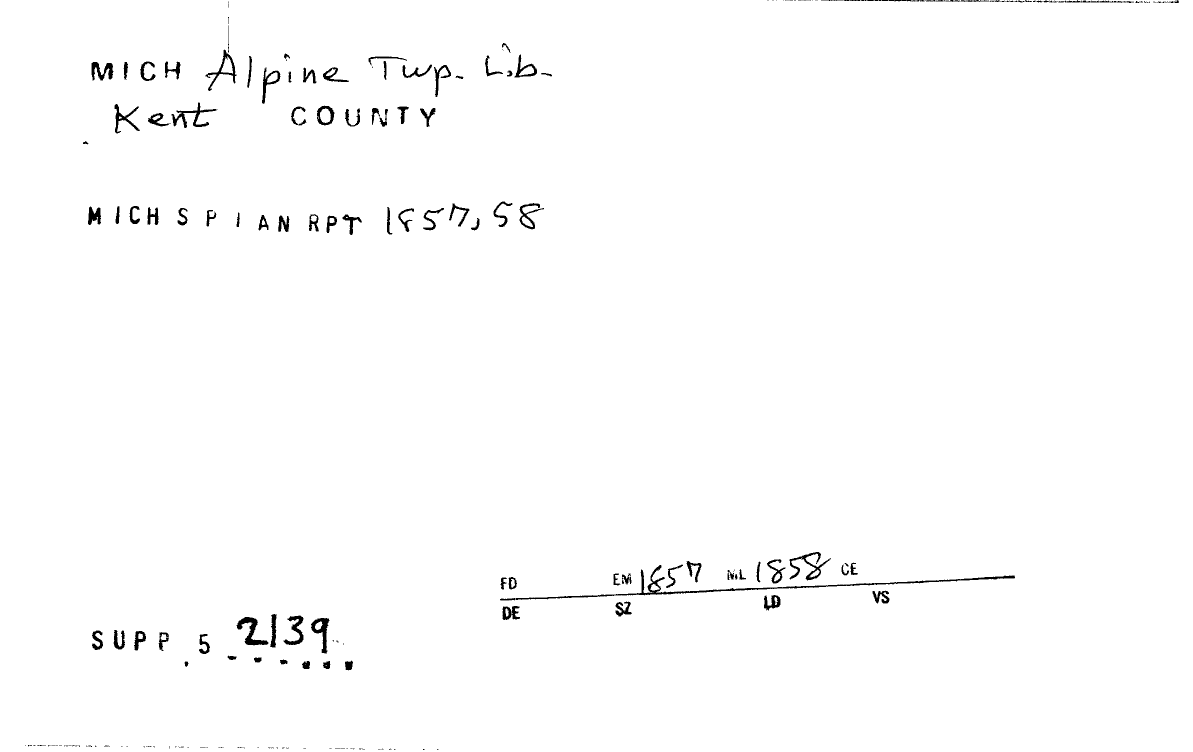 MICH Alpine Twp. Lib.
Kent COUNTY
MICH S P I AN RPT 1857, 58
FD EM 1857 ML 1858 CE
DE SZ LD VS
SUPP 5 2139